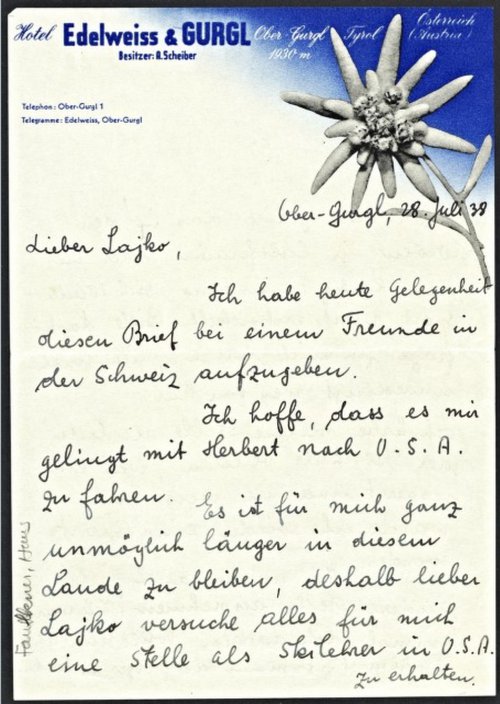 Hotel Edelweiss & GURGL Ober-Gurgl Tyrol Österreich
1930 m (Austria)
Besitzer: A. Scheiber
Telephon: Ober-Gurgl 1
Telegramme: Edelweiss, Ober-Gurgl
Ober-Gurgl, 28. Juli 38
Lieber Lajko,
Ich habe heute Gelegenheit
diesen Brief bei einem Freunde in
der Schweiz aufzugeben.
Ich hoffe, dass es mir
gelingt mit Herbert nach U.S.A.
zu fahren. Es ist für mich ganz
unmöglich länger in diesem
Lande zu bleiben, deshalb lieber
Lajko versuche alles für mich
eine Stelle als Skilehrer in U.S.A.
zu erhalten.